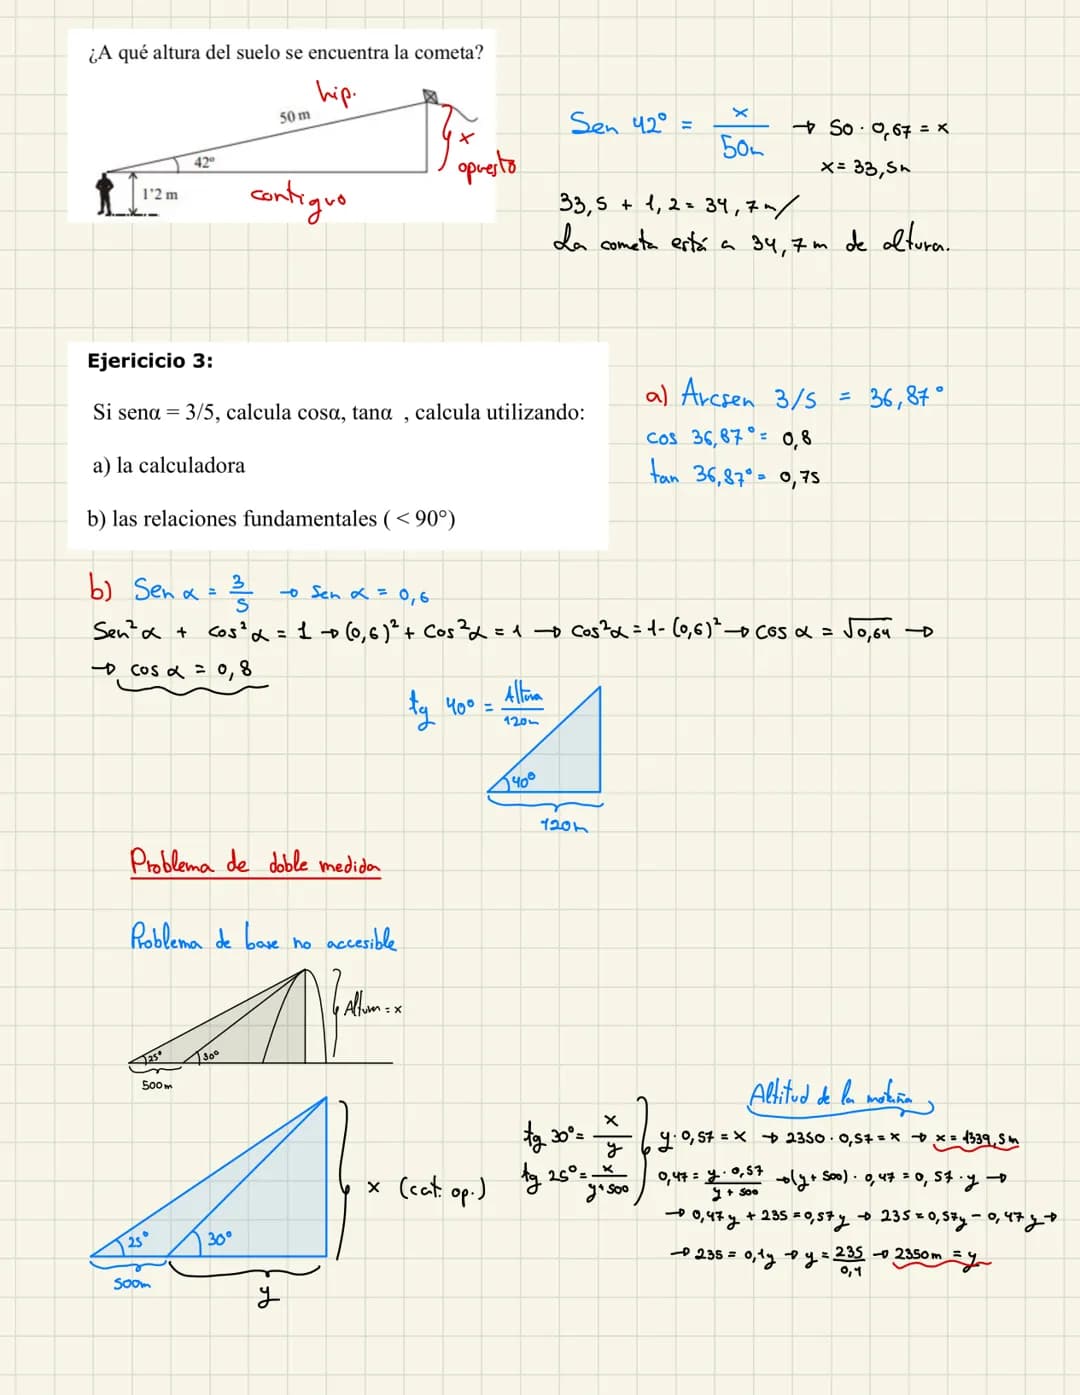 ¿A qué altura del suelo se encuentra la cometa?
hip.
50 m
x
opuesto
42º
1'2 m
contiguo
Sen 42° = x / 50m → 50 · 0,67 = x
x = 33,5m
33,5 + 1,2 = 34,7m
La cometa está a 34,7m de altura.
Ejericicio 3:
Si senα = 3/5, calcula cosα, tanα , calcula utilizando:
a) la calculadora
b) las relaciones fundamentales ( < 90°)
a) Arcsen 3/5 = 36,87°
cos 36,87° = 0,8
tan 36,87° = 0,75
b) Sen α = 3/5 → Sen α = 0,6
Sen² α + cos² α = 1 → (0,6)² + Cos² α = 1 → Cos² α = 1 - (0,6)² → Cos α = √0,64 →
→ cos α = 0,8
tg 40° = Altura / 120m
40°
120m
Problema de doble medida
Problema de base no accesible
Altura = x
25°
30°
500m
25°
30°
500m
y
x (cat. op.)
Altitud de la montaña
tg 30° = x / y
tg 25° = x / y+500
y · 0,57 = x → 2350 · 0,57 = x → x = 1339,5m
0,47 = y · 0,57 / y + 500 → (y + 500) · 0,47 = 0,57 · y →
→ 0,47y + 235 = 0,57y → 235 = 0,57y - 0,47y →
→ 235 = 0,1y → y = 235 / 0,1 → 2350m = y